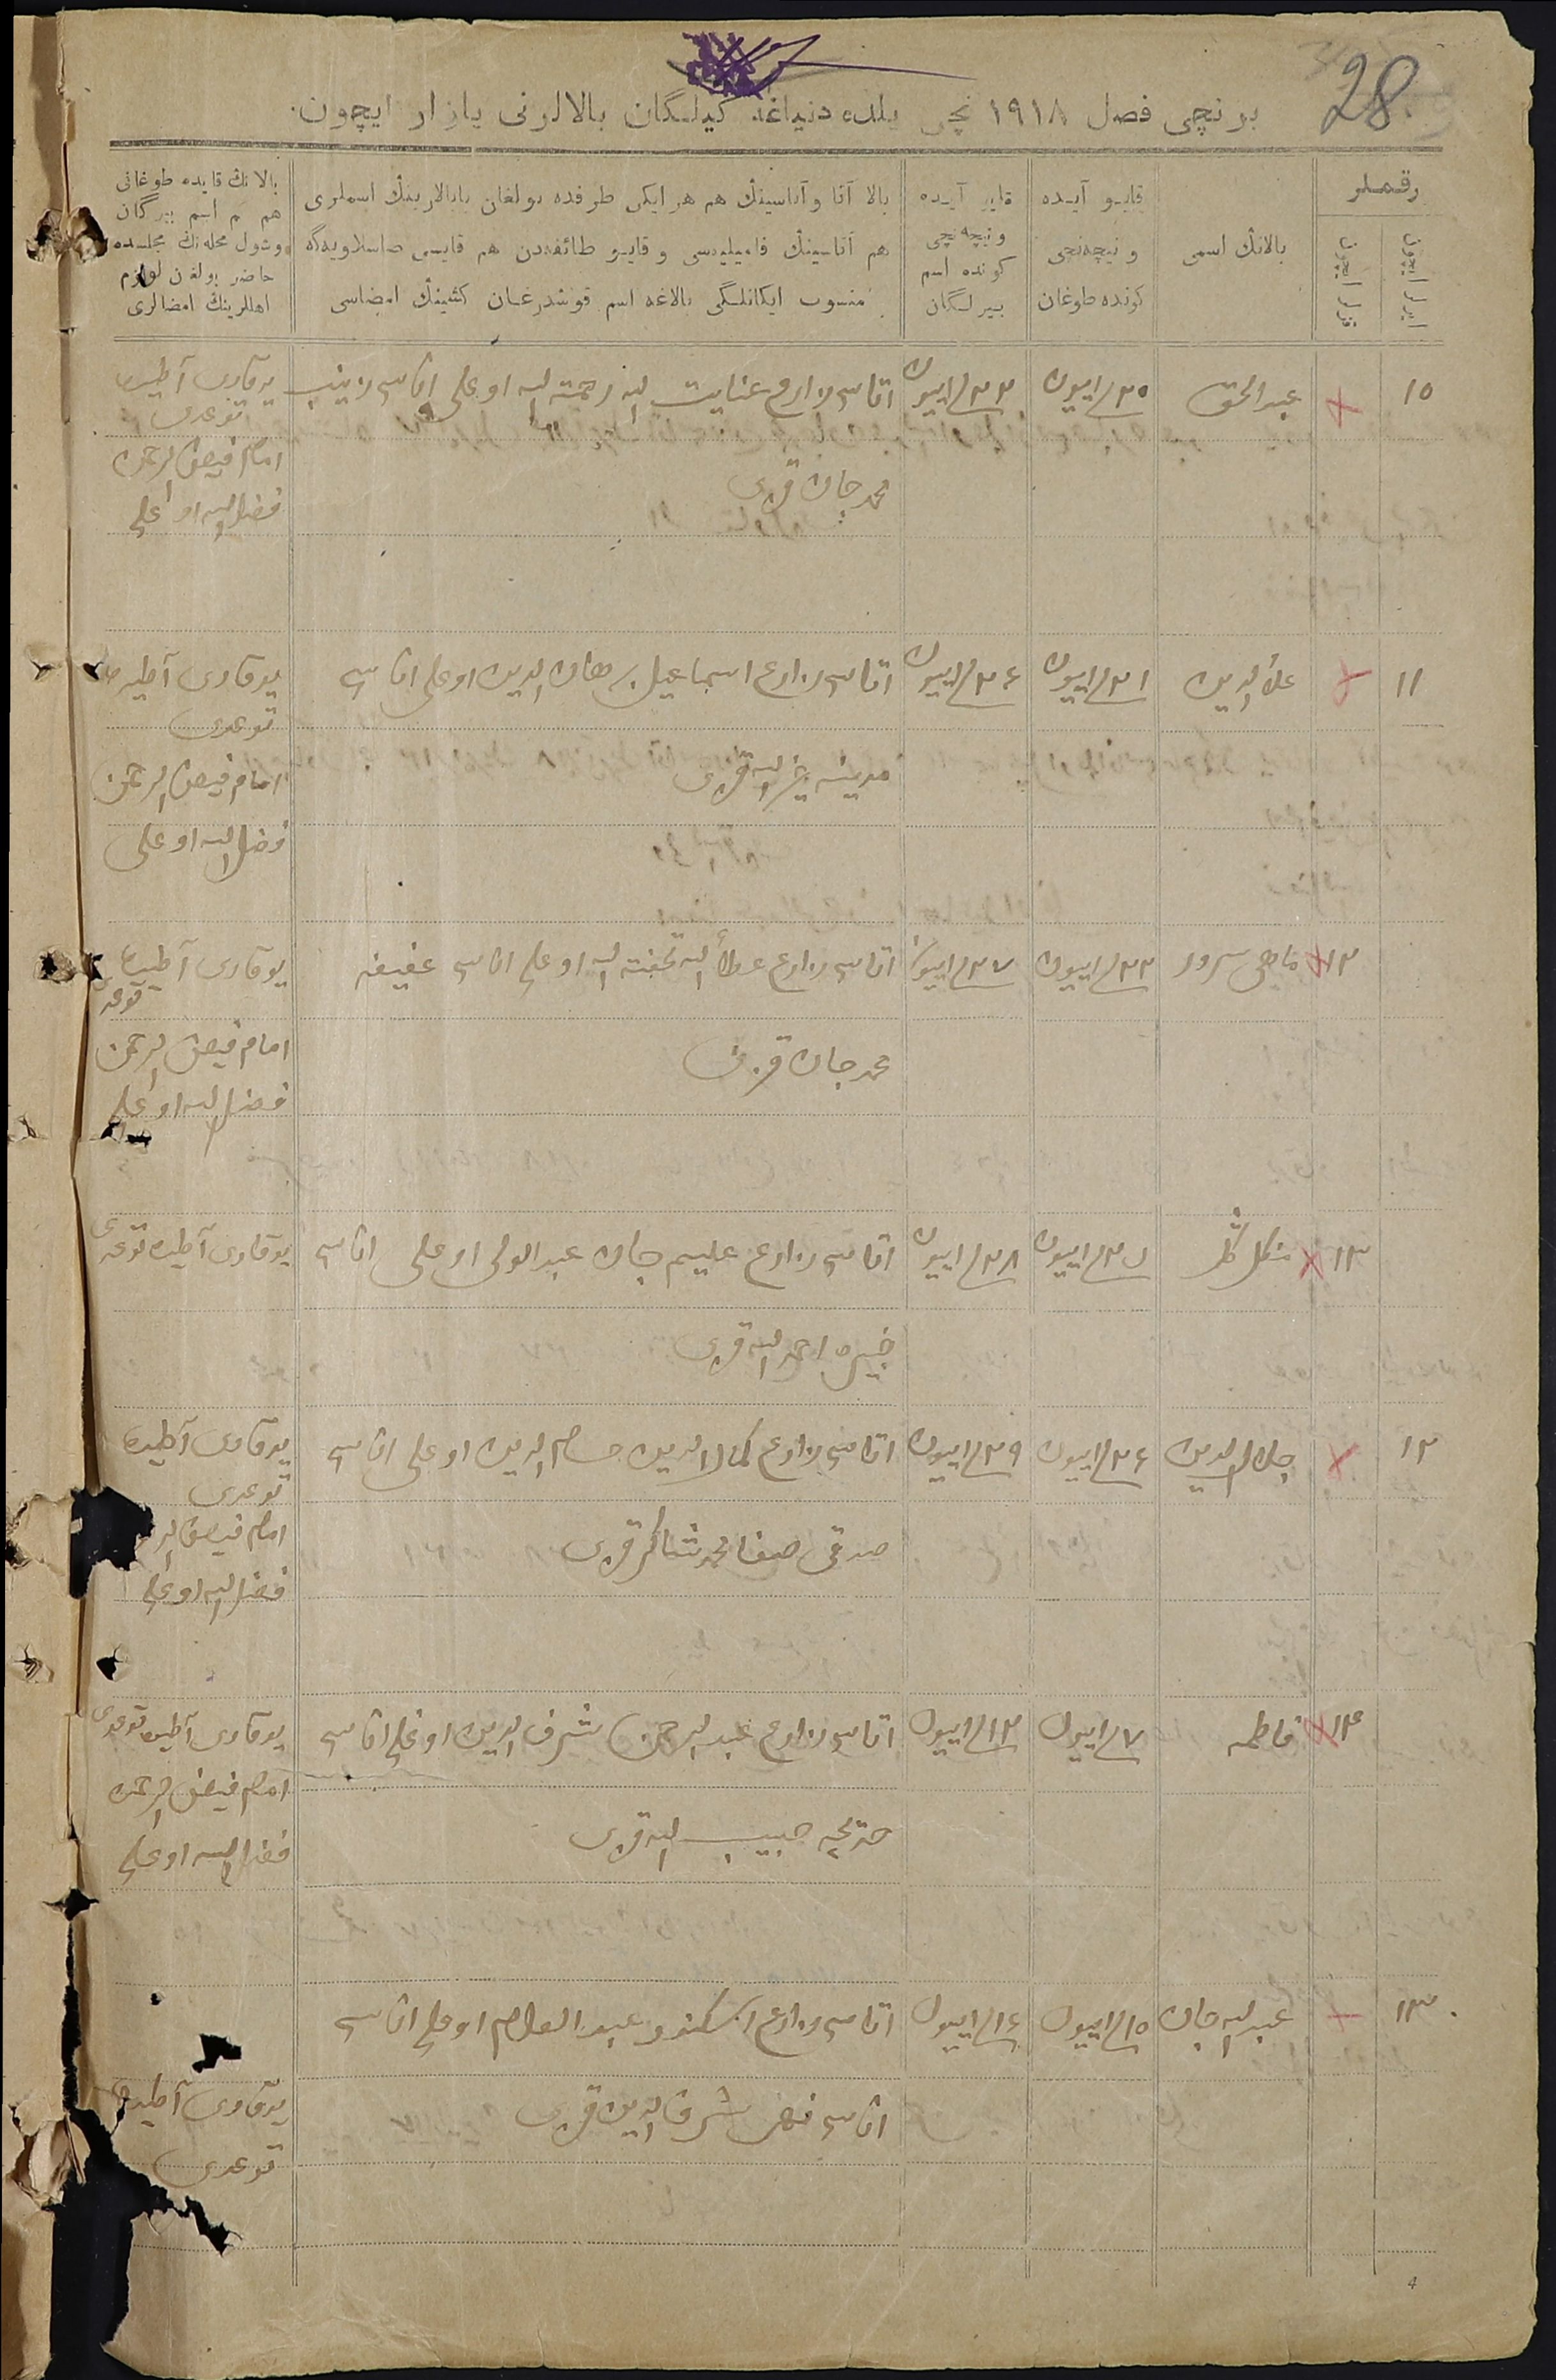 28
برنچی فصل ١٩١٨ نچی یلده دنیاغه کیلگان بالالرنی یازار ایچون.
رقملر
ایرلر ایچون
قزلر ایچون
بالانڭ اسمی
قایو آیده
و نیچه‌نچی
کونده طوغان
قایو آیده
و نیچه‌نچی
کونده اسم
بیرلگان
بالا آتا و آناسینڭ هم هر ایکی طرفده بولغان بابالارینڭ اسملری
هم آتاسینڭ فامیلیه‌سی و قایو طائفه‌دن هم قایسی صاسلاویه‌گه
منسوب ایکانلگی بالاغه اسم قوشدرغان کشینڭ امضاسی
بالانڭ قایده طوغانی
هم اسم بیرگان
وشول محله‌نڭ مجلسده
حاضر بولغن لوازم
اهللرینڭ امضالری
١٥
عبدالحق
٢٥/ایيون
٢٣/ایيون
اتاسی زارع عنایت الله رحمة الله اوغلی اناسی زینب
محمدجان قزی
یوقاری آطیده
توغدی
امام فیض الرحمن
فضل الله اوغلی
١١
علاء الدین
٢١/ایيون
٢٤/ایيون
اتاسی زارع اسماعیل برهان الدین اوغلی اناسی
مدینه خیرالله قزی
یوقاری آطیده
توغدی
امام فیض الرحمن
فضل الله اوغلی
١٢
ماهی سرور
٢٣/ایيون
٢٧/ایيون
اتاسی زارع عطاء الله تحفة الله اوغلی اناسی عفیفه
محمدجان قزی
یوقاری آطیده
توغدی
امام فیض الرحمن
فضل الله اوغلی
١٣
مڭلی گل
٢٨/ایيون
اتاسی زارع علیم جان عبدالولی اوغلی اناسی
خیره احمدالله قزی
یوقاری آطیده توغدی
١٢
جلال الدین
٢٦/ایيون
٢٩/ایيون
اتاسی زارع کمال الدین حسام الدین اوغلی اناسی
صدقی صفا محمدشاکر قزی
یوقاری آطیده
توغدی
امام فیض الر
فضل الله اوغلی
١٤
فاطمه
٧/ایيول
١٢/ایيول
اتاسی زارع عبدالرحمن شرف الدین اوغلی اناسی
خدیجه حبیب الله قزی
یوقاری آطیده توغدی
امام فیض الرحمن
فضل الله اوغلی
١٣
عبدالله جان
١٥/ایيول
١٦/ایيول
اتاسی زارع اسکندر عبدالعلام اوغلی اناسی
اناسی شرف الدین قزی
یوقاری آطیده
توغدی
4